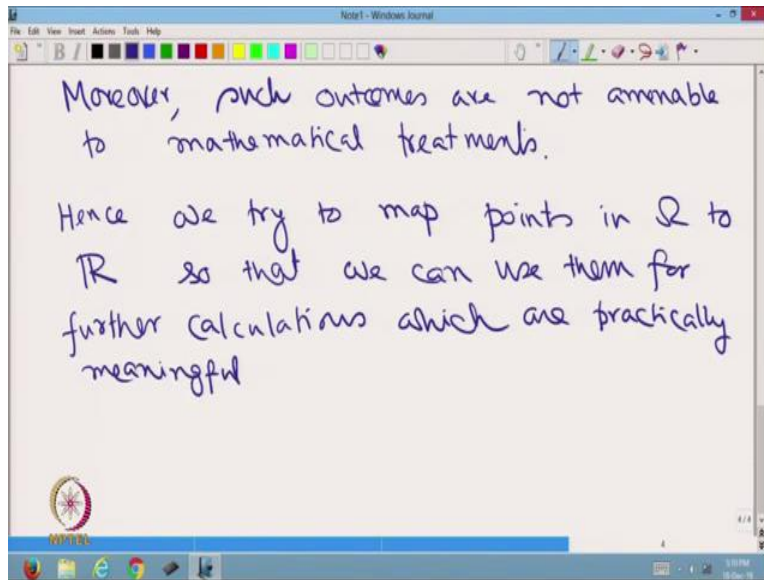 Note1 - Windows Journal
File Edit View Insert Actions Tools Help
Moreover, such outcomes are not amenable
to mathematical treatments.
Hence we try to map points in Ω to
ℝ so that we can use them for
further calculations which are practically
meaningful
NPTEL
4/4
4